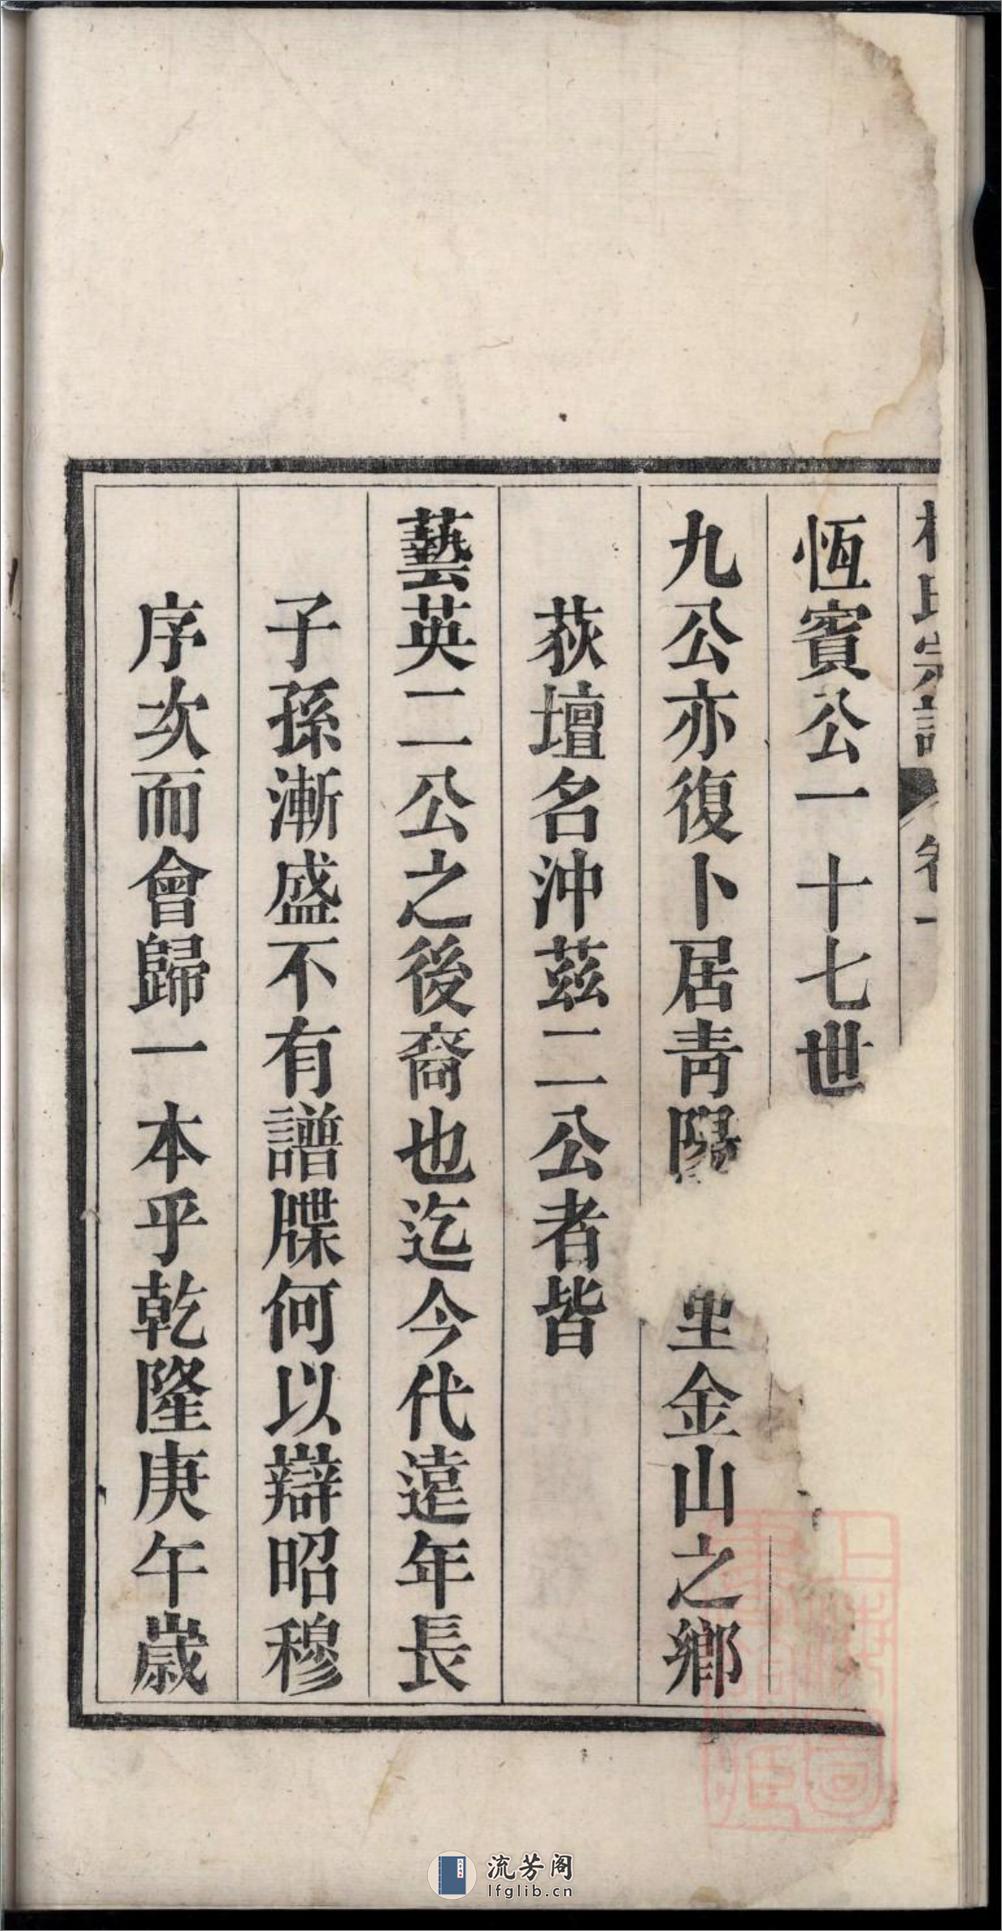 氏宗譜 卷一
恆賓公一十七世
九公亦復卜居青陽 里金山之鄉
荻壇名沖茲二公者皆
藝英二公之後裔也迄今代遠年長
子孫漸盛不有譜牒何以辯昭穆
序次而會歸一本乎乾隆庚午歲
上海圖書館藏
流芳阁
lfglib.cn